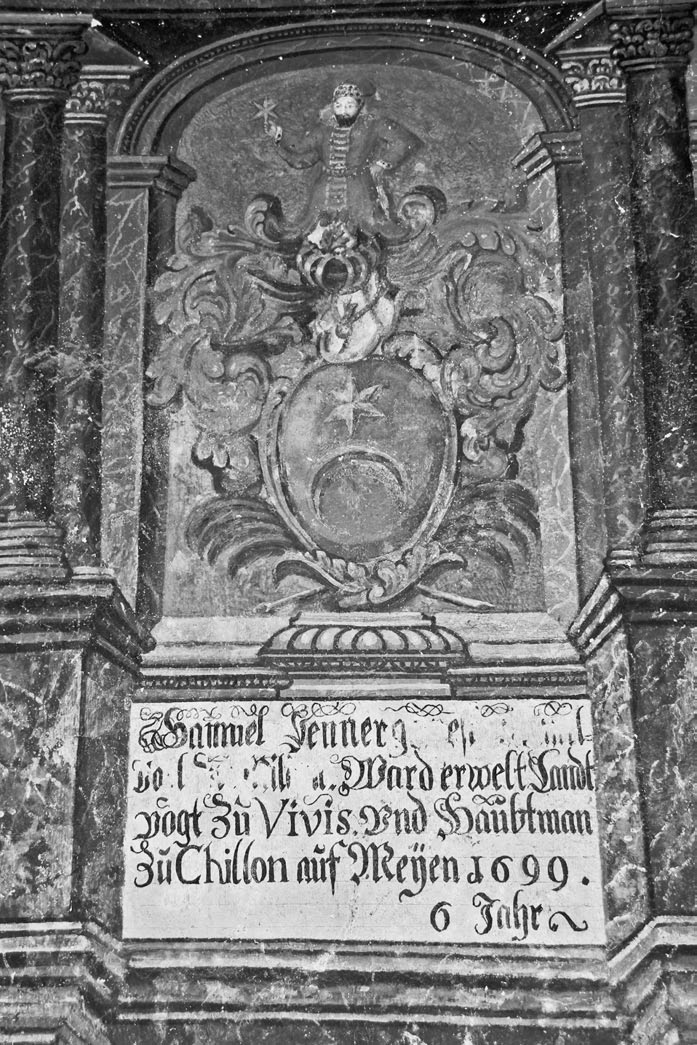 Samuel Jenner
Ward erwelt Landt
vogt zu Vivis. vnd Haubtman
zu Chillon auf Meyen 1699.
6 Jahr